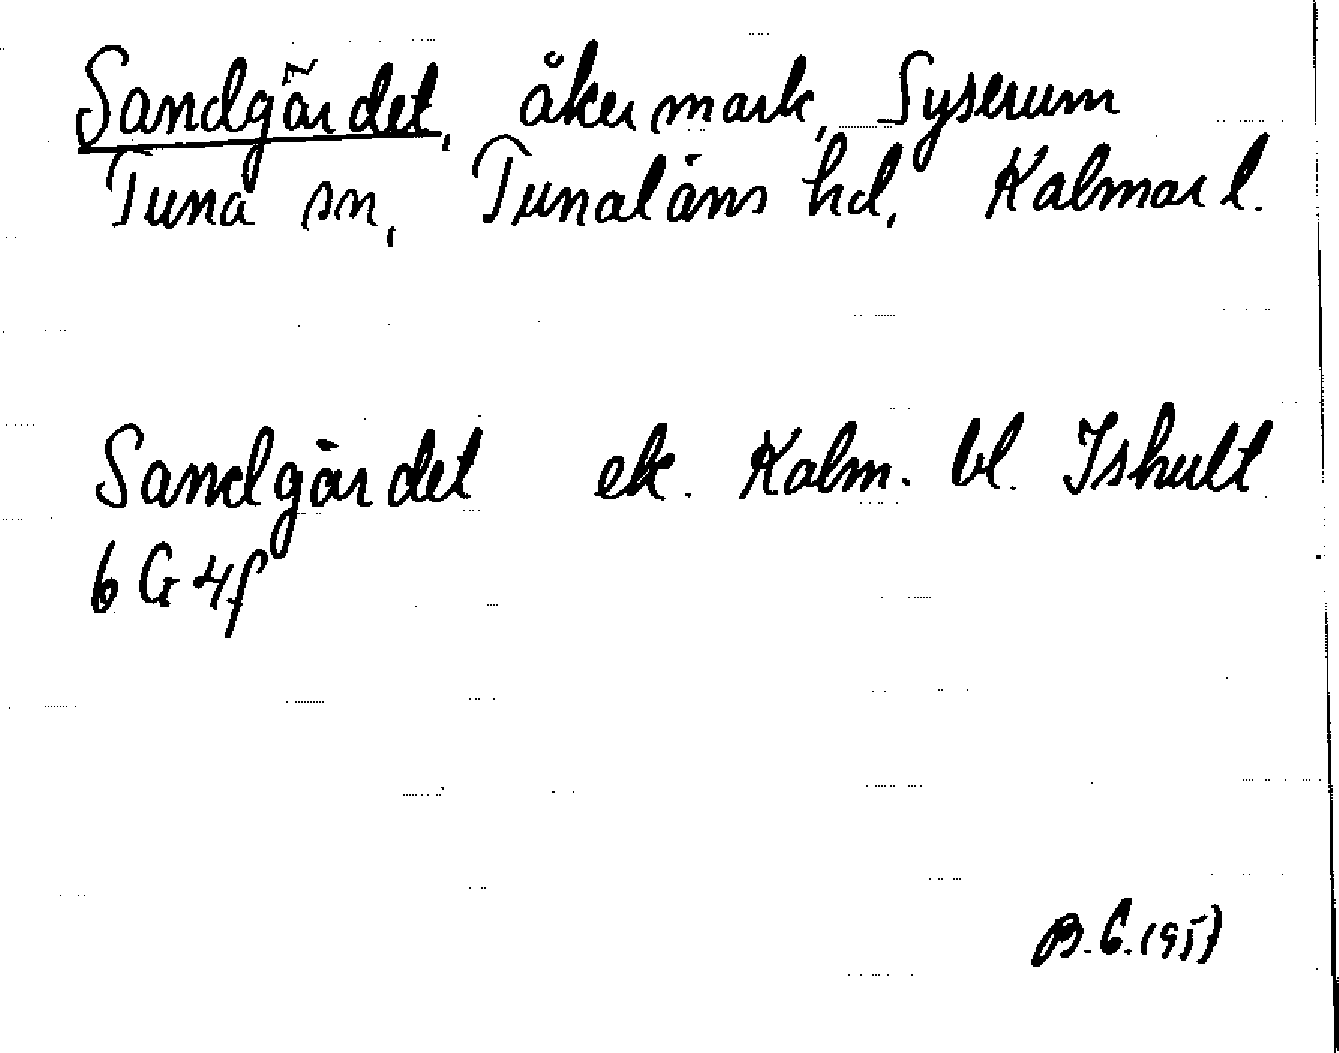 Sandgärdet, åkermark, Syserum
Tuna sn, Tunaläns hd, Kalmar l.
Sandgärdet ek. Kalm. bl. Ishult
6 G 4f